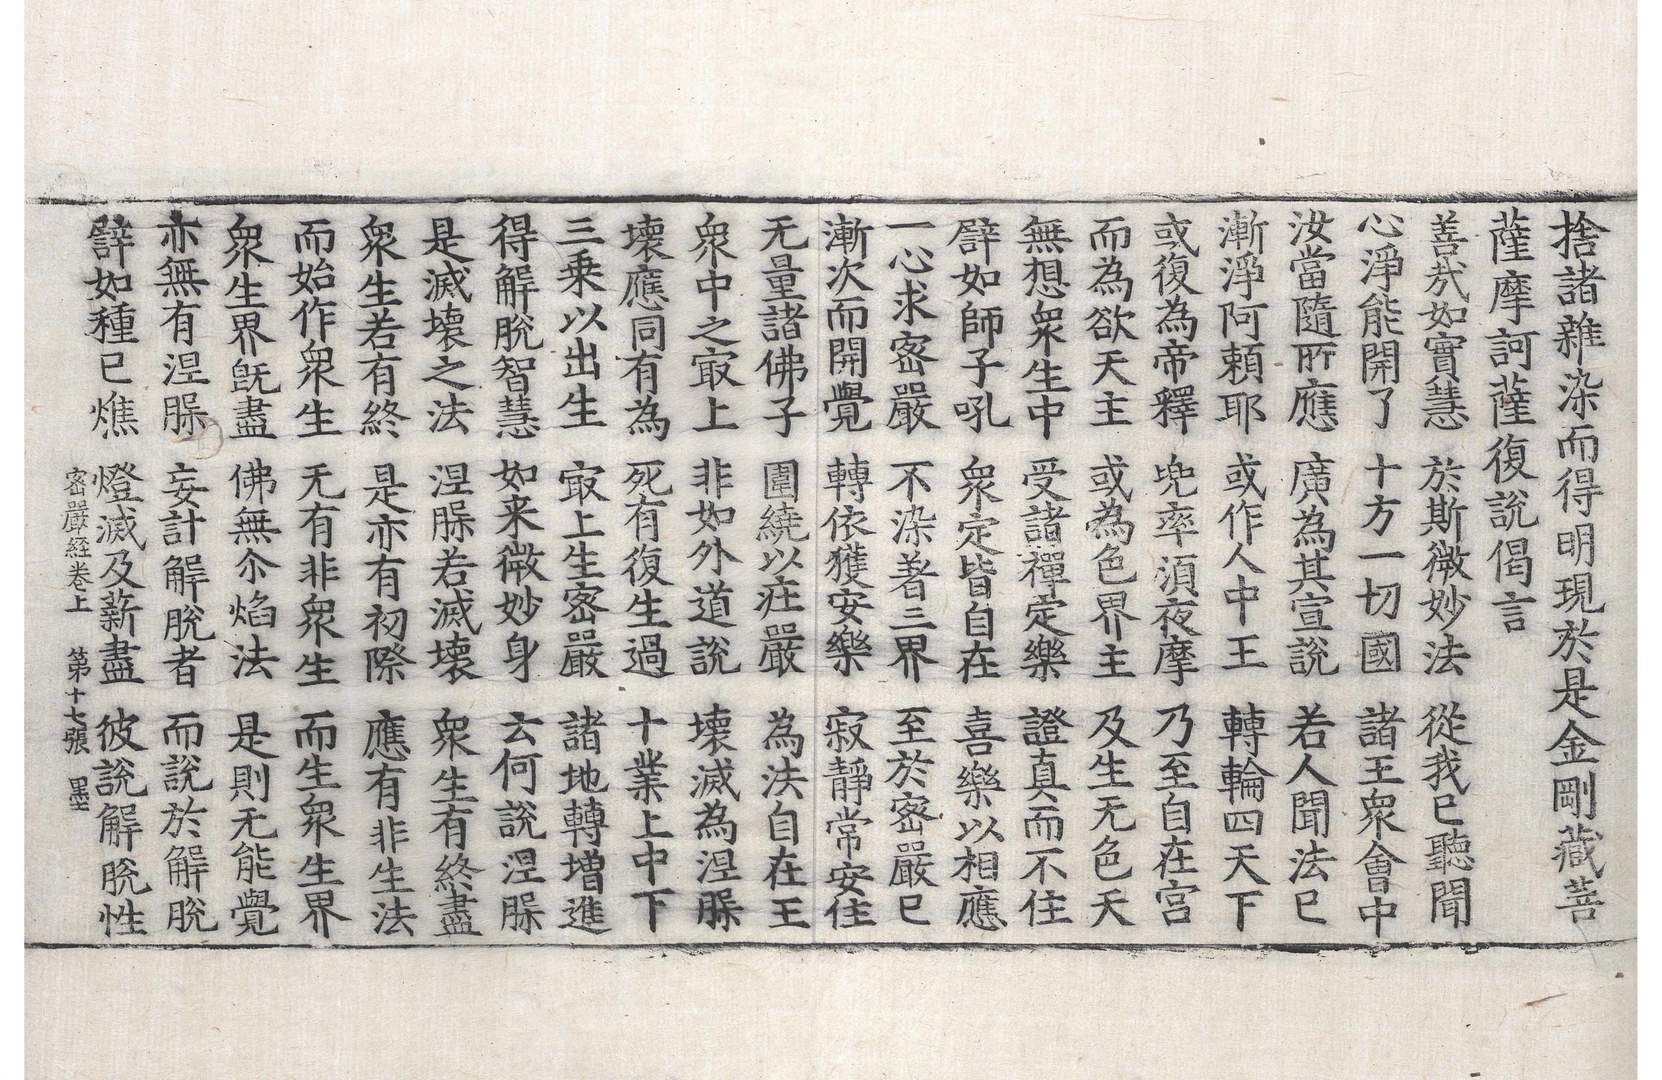 捨諸雜染而得明現於是金剛藏菩
薩摩訶薩復說偈言
善哉如實慧 於斯微妙法 從我已聽聞
心淨能開了 十方一切國 諸王衆會中
汝當隨所應 廣為其宣說 若人聞法已
漸淨阿頼耶 或作人中王 轉輪四天下
或復為帝釋 兜率須夜摩 乃至自在宮
而為欲天主 或為色界主 及生无色天
無想衆生中 受諸禪定樂 證真而不住
譬如師子吼 衆定皆自在 喜樂以相應
一心求密嚴 不染著三界 至於密嚴已
漸次而開覺 轉依獲安樂 寂靜常安住
无量諸佛子 圍繞以莊嚴 為法自在王
衆中之㝡上 非如外道說 壞滅為涅槃
壞應同有為 死有復生過 十業上中下
三乗以出生 㝡上生密嚴 諸地轉増進
得解脫智慧 如来微妙身 云何說涅槃
是滅壞之法 涅槃若滅壞 衆生有終盡
衆生若有終 是亦有初際 應有非生法
而始作衆生 无有非衆生 而生衆生界
衆生界旣盡 佛無尒焰法 是則无能覺
亦無有涅槃 妄計解脫者 而說於解脫
譬如種已燋 燈滅及薪盡 彼說解脫性
密嚴経卷上 第十七張 墨